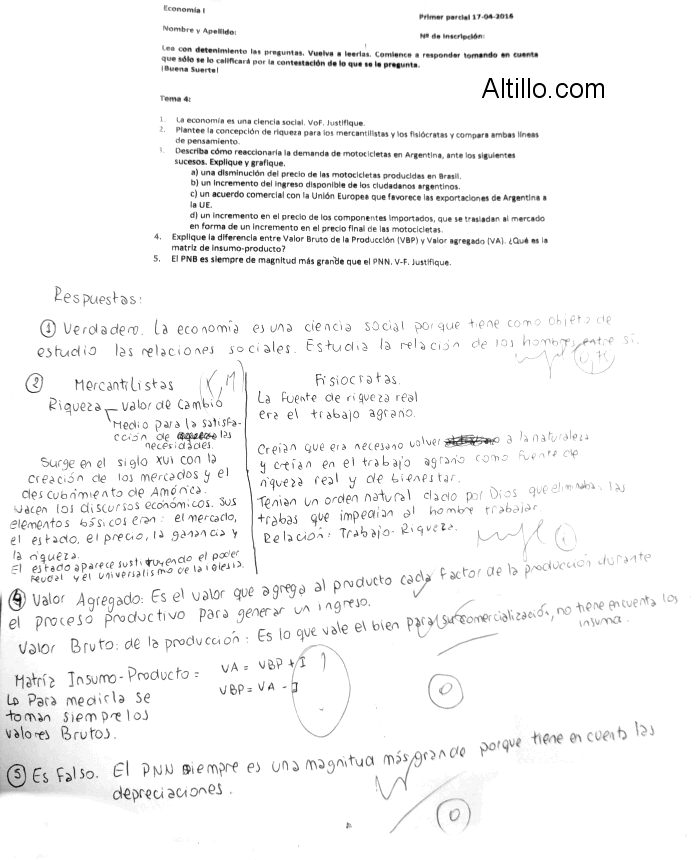 Economía I
Primer parcial 17-04-2016
Nombre y Apellido:
Nº de Inscripción:
Lea con detenimiento las preguntas. Vuelva a leerlas. Comience a responder tomando en cuenta
que sólo se lo calificará por la contestación de lo que se le pregunta.
¡Buena Suerte!
Altillo.com
Tema 4:
1. La economía es una ciencia social. VoF. Justifique.
2. Plantee la concepción de riqueza para los mercantilistas y los fisiócratas y compara ambas líneas
de pensamiento.
3. Describa cómo reaccionaría la demanda de motocicletas en Argentina, ante los siguientes
sucesos. Explique y grafique.
a) una disminución del precio de las motocicletas producidas en Brasil.
b) un incremento del ingreso disponible de los ciudadanos argentinos.
c) un acuerdo comercial con la Unión Europea que favorece las exportaciones de Argentina a
la UE.
d) un incremento en el precio de los componentes importados, que se trasladan al mercado
en forma de un incremento en el precio final de las motocicletas.
4. Explique la diferencia entre Valor Bruto de la Producción (VBP) y Valor agregado (VA). ¿Qué es la
matriz de insumo-producto?
5. El PNB es siempre de magnitud más grande que el PNN. V-F. Justifique.
Respuestas:
① Verdadero. La economía es una ciencia social porque tiene como objeto de
estudio las relaciones sociales. Estudia la relación de los hombres entre sí.
② Mercantilistas
Riqueza valor de cambio
Medio para la satisfa-
cción de las
necesidades.
Surge en el siglo XVI con la
creación de los mercados y el
descubrimiento de América.
Nacen los discursos económicos. Sus
elementos básicos eran: el mercado,
el estado, el precio, la ganancia y
la riqueza.
El estado aparece sustituyendo el poder
feudal y el universalismo de la iglesia.
Fisiocratas.
La fuente de riqueza real
era el trabajo agrario.
Creían que era necesario volver a la naturaleza
y creían en el trabajo agrario como fuente de
riqueza real y de bienestar.
Tenian un orden natural dado por Dios que eliminaba las
trabas que impedian al hombre trabajar
Relación: Trabajo-Riqueza.
1
④ Valor Agregado: Es el valor que agrega al producto cada factor de la producción durante
el proceso productivo para generar un ingreso.
Valor Bruto: de la producción: Es lo que vale el bien para su comercialización, no tiene en cuenta los
insumo.
Matríz Insumo-Producto =
Para medirla se
toman siempre los
valores Brutos.
VA = VBP + I
VBP = VA - I
?
0
⑤ Es Falso. El PNN siempre es una magnitud más grande porque tiene en cuenta las
depreciaciones.
0